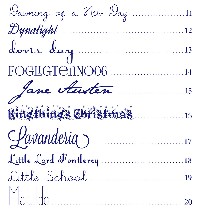 Dawning of a New Day 11
Dynalight 12
13
FOGLIGHTEN006 14
Jane Austen 15
Kingthings Christmas 16
Lavanderia 17
Little Lord Fontleroy 18
Little School 19
20